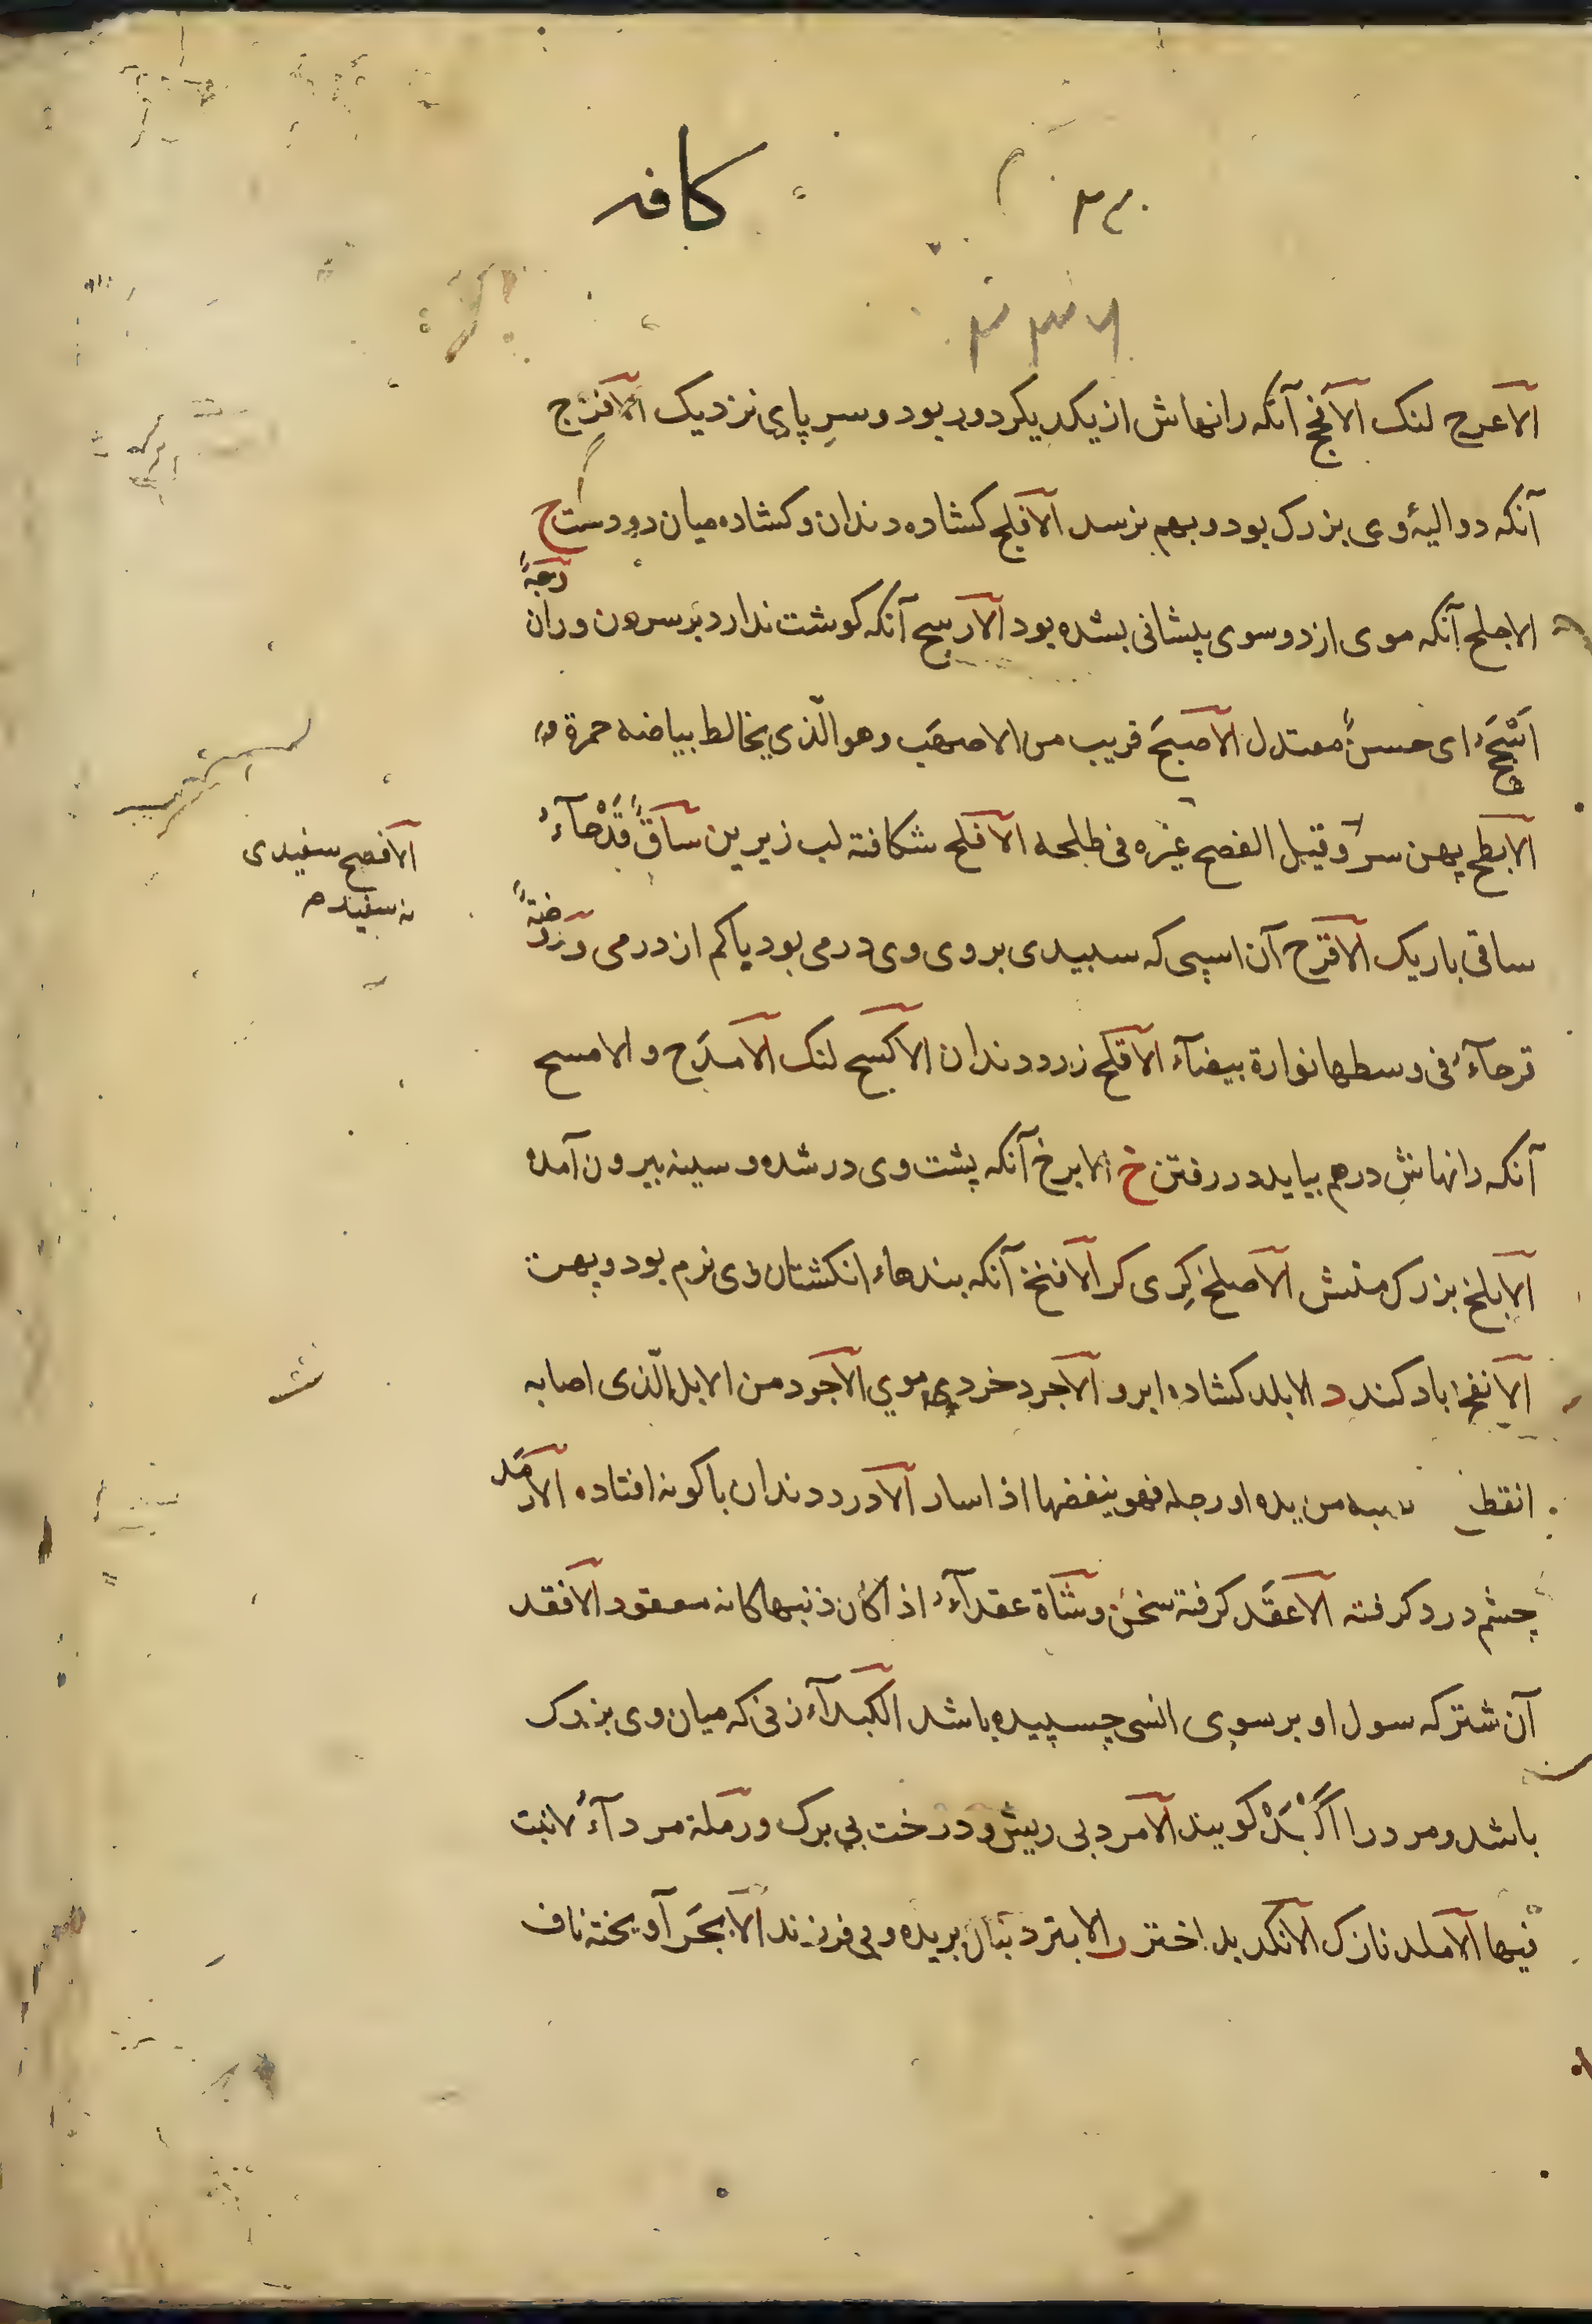 کافه
الاعرج لنک الافحج آنکه رانهاش از یکدیکر دور بود و سرِ پای نزدیک الافرج
آنکه دو الیهٔ وی بزرک بود و بهم نرسد الافلج کشاده دندان و کشاده میان دو دست ح
الاجلح آنکه موی از دو سوی پیشانی بشده بود الارسح آنکه کوشت ندارد بر سرون و ران
ای حسنٌ معتدل الاصبح قریب من الاصهب و هو الّذی یخالط بیاضه حمرة
الابطح پهن سر و قیل الفصح غیره فی طلحه الافلح شکافته لب زیرین ساقٌ قَدْحآءُ
الافصح سفیدی
نه سفیدم
ساقی باریک الاقرح آن اسپی که سپیدی بروی وی درمی بود یا کم از درمی و روضةٌ
قرحآءُ فی وسطها نوارة بیضآء الاقلح زرد دندان الاکسح لنک الامذح و الامسح
آنکه رانهاش درهم بیاید در رفتن خ الابزخ آنکه پشت وی در شده و سینه بیرون آمده
الابلخ بزرک منش الاصلخ کری کر الافتخ آنکه بندهاء انکشتان وی نرم بود و پهن
الانفخ باد کند د الابلد کشاده ابرو الاجرد خردی موی الاجرد من الابل الّذی اصابه
انقطاع عصبه من یده او رجله فهو ینفضها اذا سار الادرد دندان باکونه افتاده الارمد
چشم درد کرفته الاعقد کرفته سخن و شاة عقدآءُ اذا کان ذنبها کانه معقود الاقفد
آن شتر که سول او بر سوی انسی چسپیده باشد الکبدآء زنی که میان وی بزرک
باشد و مرد را اَکْبَدْ کویند الامرد بی ریش و درخت بی برک و رملة مردآءُ لا نبت
فیها الاملد نازک الانکد بد اختر ر الابتر دنبال بریده و بی فرزند الابجَر آویخته ناف